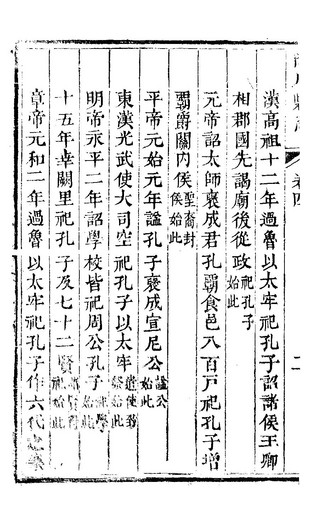 漢高祖十二年過魯以太牢祀孔子詔諸侯王卿
相郡國先謁廟後從政祀孔子始此
元帝詔太師褒成君孔霸食邑八百戸祀孔子增
霸爵關內侯聖裔封侯始此
平帝元始元年諡孔子褒成宣尼公諡公始此
東漢光武使大司空祀孔子以太牢遣使致祭始此
明帝永平二年詔學校皆祀周公孔子學始此
十五年幸闕里祀孔子及七十二賢祀始此
章帝元和二年過魯以太牢祀孔子作六代
卷四
二